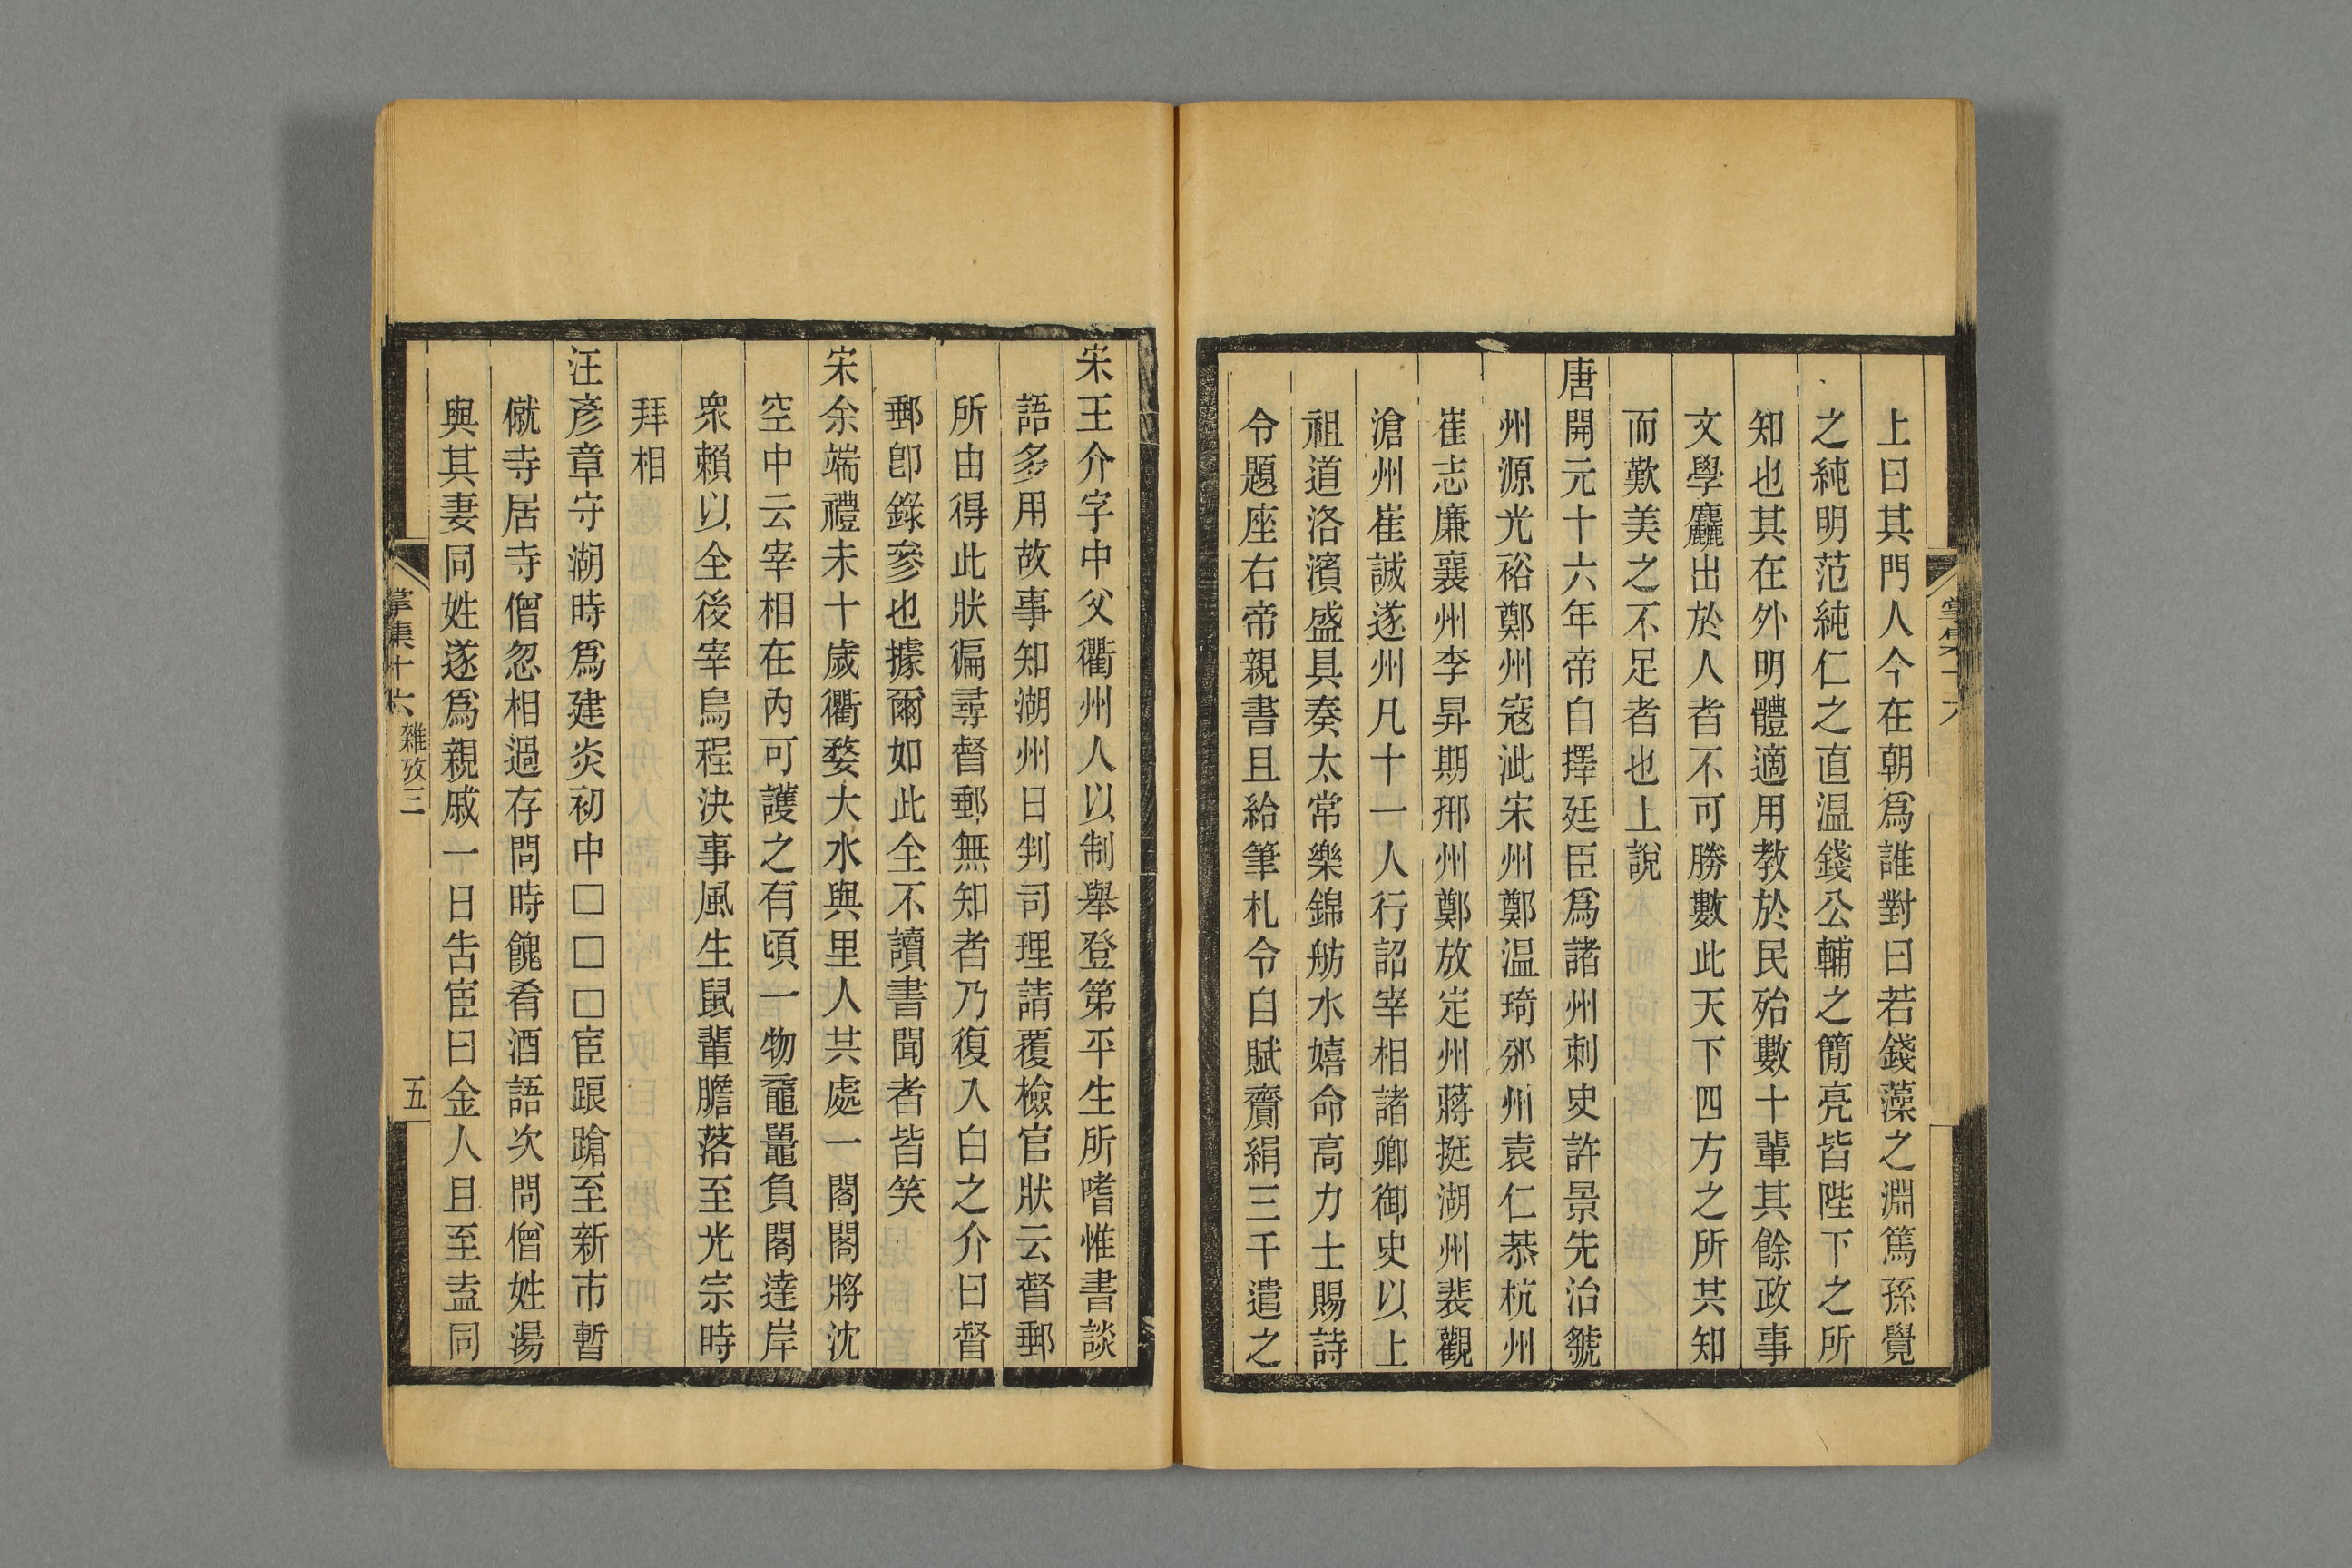 上曰其門人今在朝爲誰對曰若錢藻之淵篤孫覺
之純明范純仁之直温錢公輔之簡亮皆陛下之所
知也其在外明體適用教於民殆數十輩其餘政事
文學麤出於人者不可勝數此天下四方之所共知
而歎美之不足者也上說
唐開元十六年帝自擇廷臣爲諸州刺史許景先治虢
州源光裕鄭州寇泚宋州鄭温琦邠州袁仁恭杭州
崔志廉襄州李昇期邢州鄭放定州蔣挺湖州裴觀
滄州崔誠遂州凡十一人行詔宰相諸卿御史以上
祖道洛濱盛具奏太常樂錦舫水嬉命高力士賜詩
令題座右帝親書且給筆札令自賦賷絹三千遣之
宋王介字中父衢州人以制舉登第平生所嗜惟書談
語多用故事知湖州日判司理請覆檢官狀云督郵
所由得此狀徧尋督郵無知者乃復入白之介曰督
郵卽錄參也據爾如此全不讀書聞者皆笑
宋余端禮未十歲衢婺大水與里人共處一閣閣將沈
空中云宰相在內可護之有頃一物黿鼉負閣達岸
衆賴以全後宰烏程決事風生鼠輩膽落至光宗時
拜相
汪彥章守湖時爲建炎初中□□□宦踉蹌至新市暫
僦寺居寺僧忽相過存問時餽肴酒語次問僧姓湯
與其妻同姓遂爲親戚一日吿宦曰金人且至盍同
掌集十六 雜攷三 五